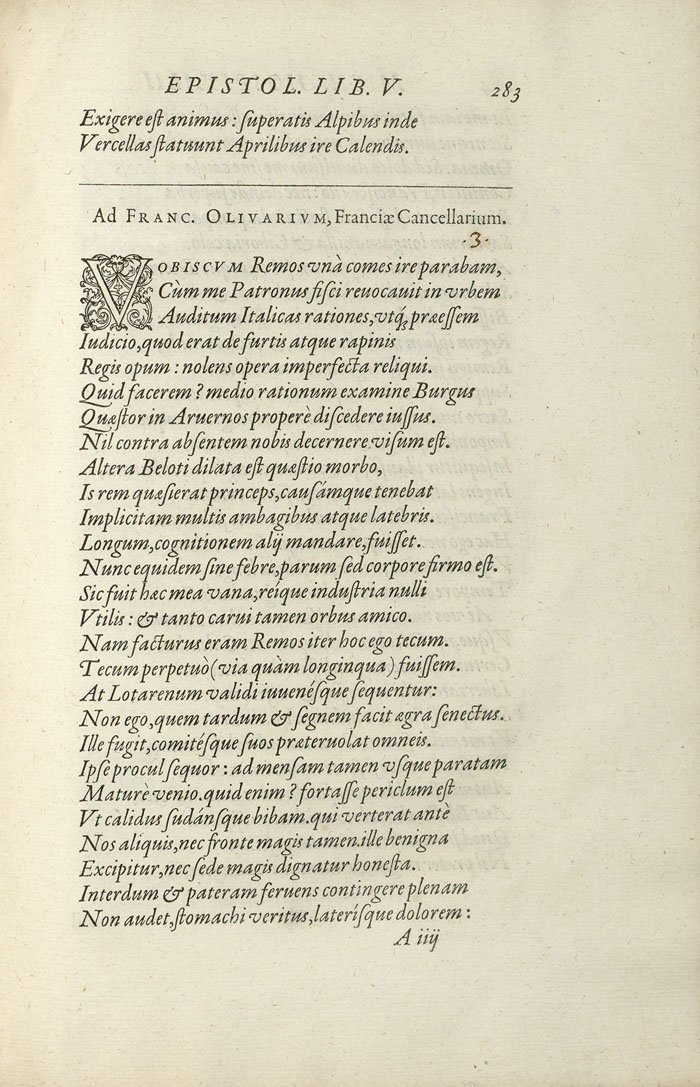 EPISTOL. LIB. V. 283
Exigere est animus: superatis Alpibus inde
Vercellas statuunt Aprilibus ire Calendis.
Ad FRANC. OLIVARIVM, Franciæ Cancellarium.
·3·
VOBISCVM Remos vnà comes ire parabam,
Cùm me Patronus fisci reuocauit in vrbem
Auditum Italicas rationes, vtq; præessem
Iudicio, quod erat de furtis atque rapinis
Regis opum: nolens opera imperfecta reliqui.
Quid facerem? medio rationum examine Burgus
Quæstor in Aruernos properè discedere iussus.
Nil contra absentem nobis decernere visum est.
Altera Beloti dilata est quæstio morbo,
Is rem quæsierat princeps, causámque tenebat
Implicitam multis ambagibus atque latebris.
Longum, cognitionem alij mandare, fuisset.
Nunc equidem sine febre, parum sed corpore firmo est.
Sic fuit hæc mea vana, reique industria nulli
Vtilis: & tanto carui tamen orbus amico.
Nam facturus eram Remos iter hoc ego tecum.
Tecum perpetuò (via quàm longinqua) fuissem.
At Lotarenum validi iuuenésque sequentur:
Non ego, quem tardum & segnem facit ægra senectus.
Ille fugit, comitésque suos præteruolat omneis.
Ipse procul sequor: ad mensam tamen vsque paratam
Maturè venio. quid enim? fortasse periclum est
Vt calidus sudánsque bibam. qui verterat antè
Nos aliquis, nec fronte magis tamen ille benigna
Excipitur, nec sede magis dignatur honesta.
Interdum & pateram feruens contingere plenam
Non audet, stomachi veritus, laterísque dolorem:
A iiij